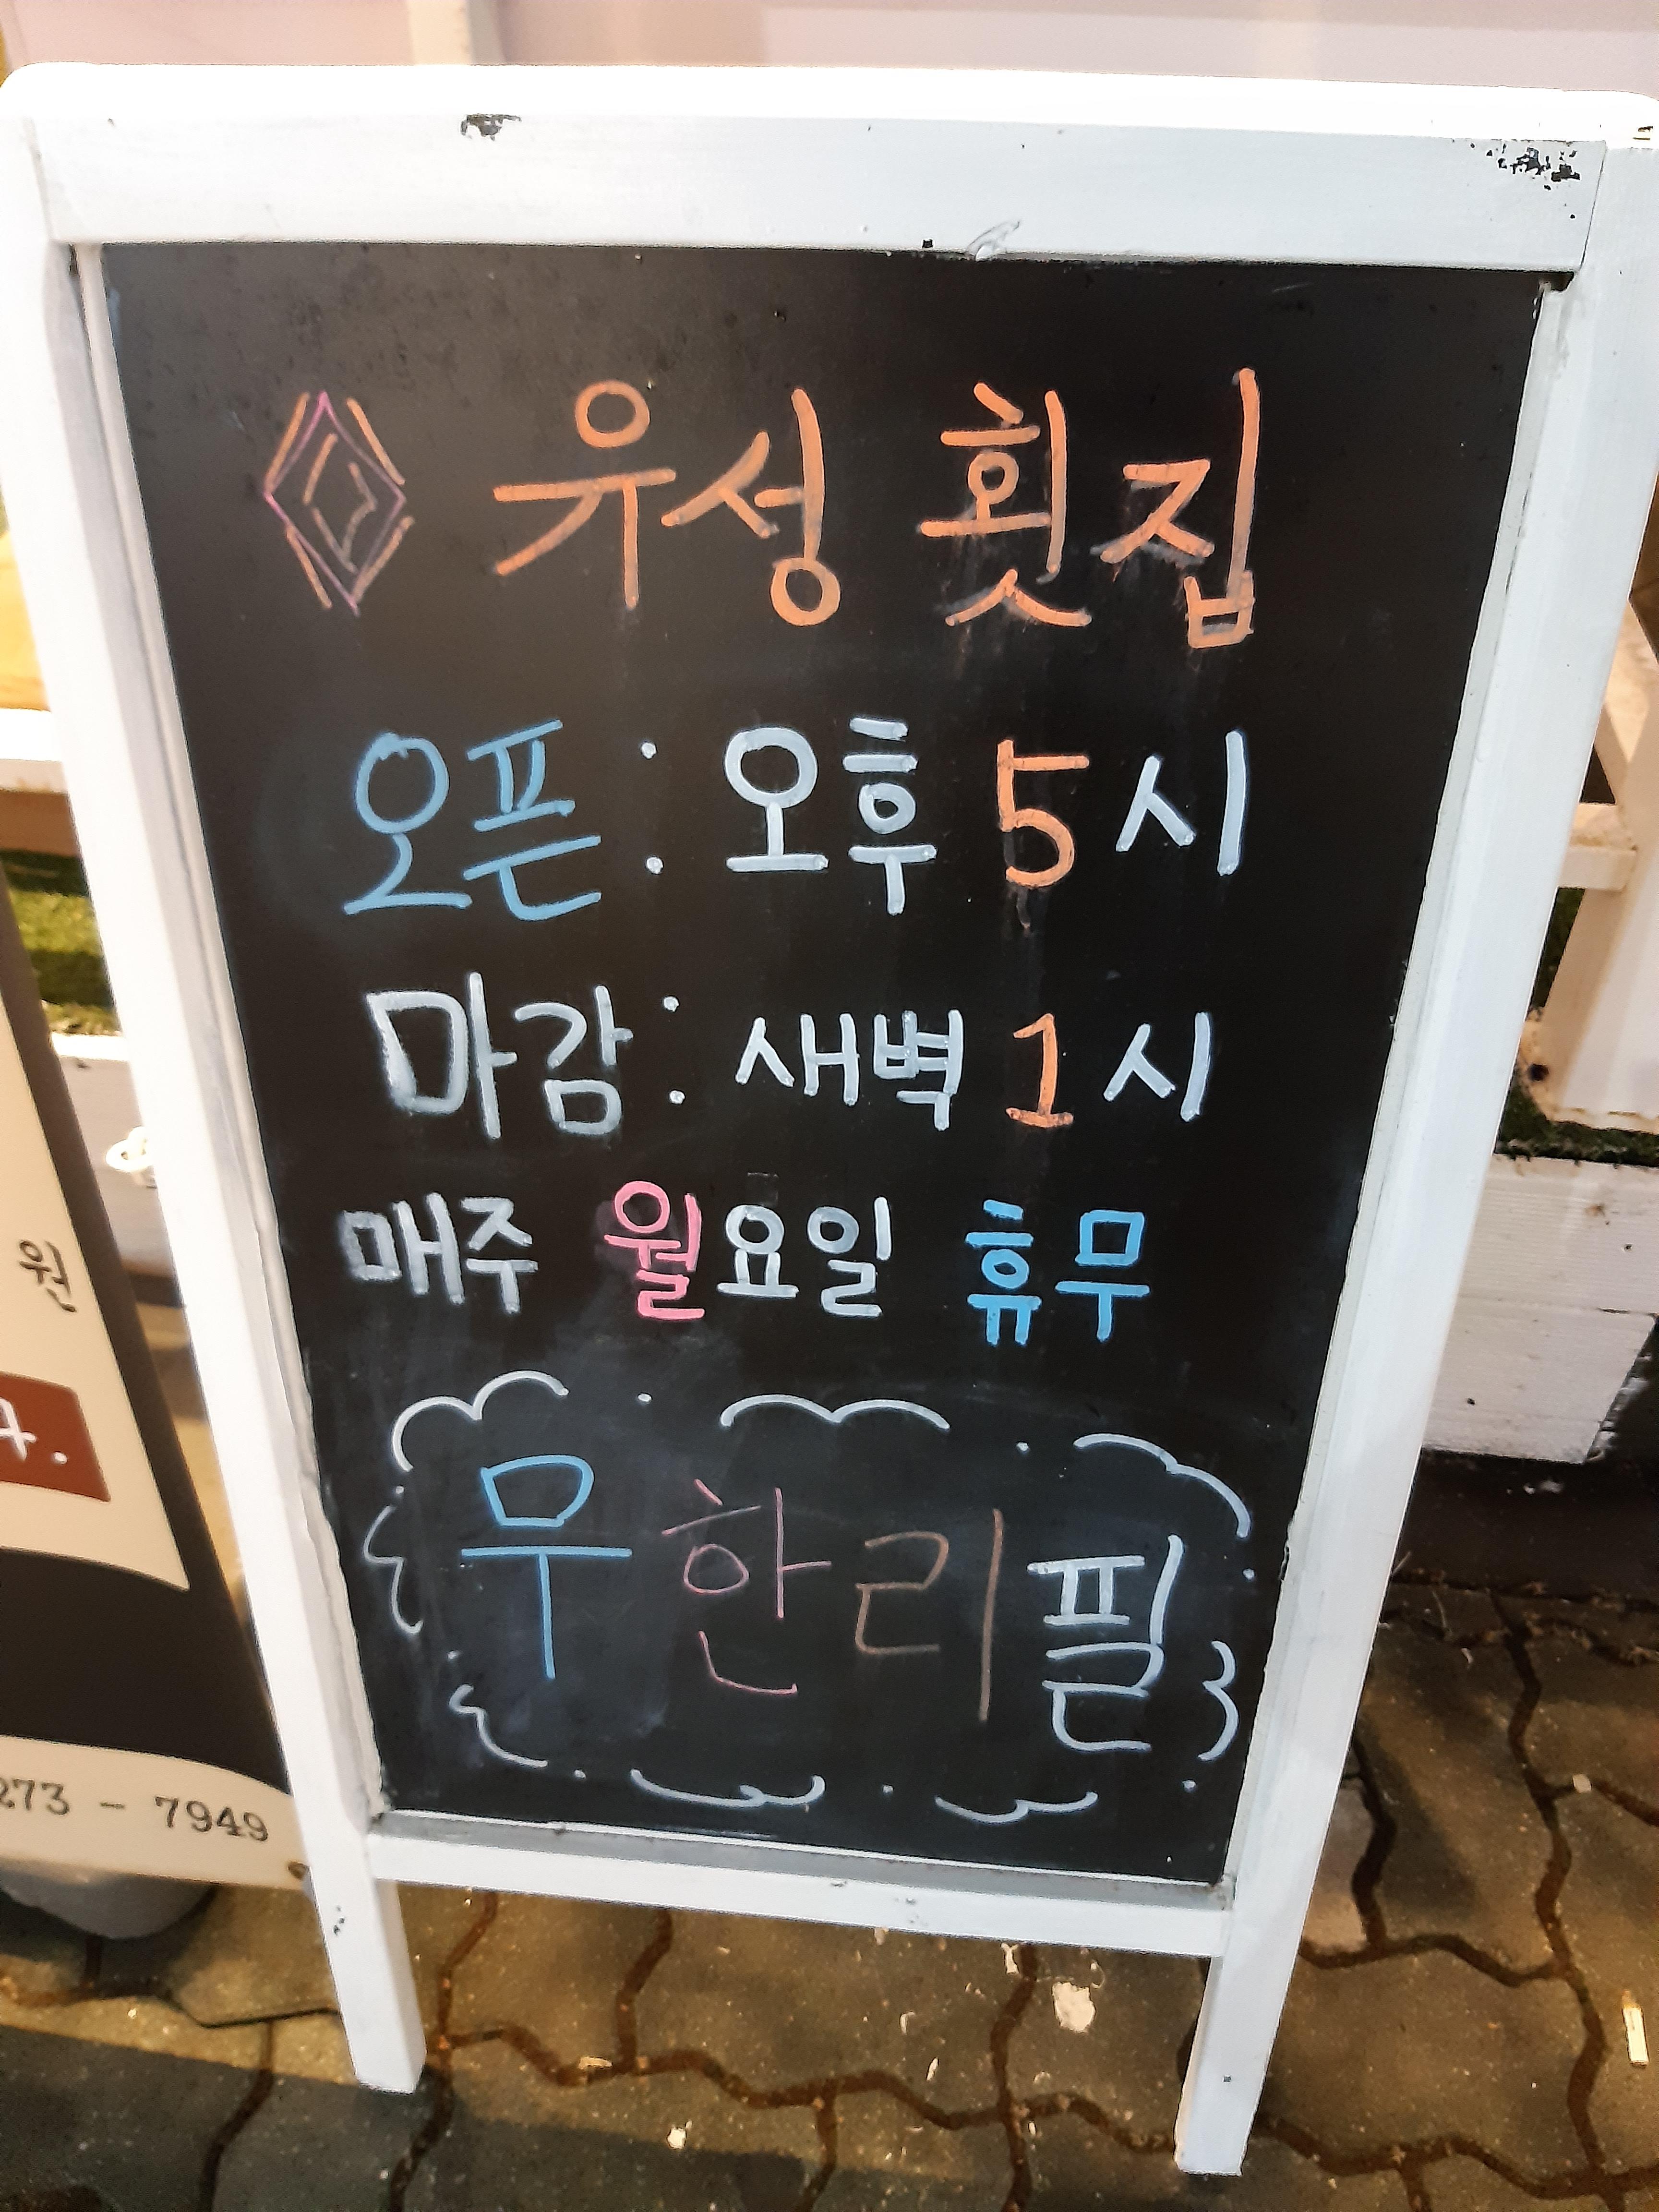 유성 횟집
오픈 : 오후 5시
마감 : 새벽 1시
매주 월요일 휴무
무한리필
원
273 - 7949